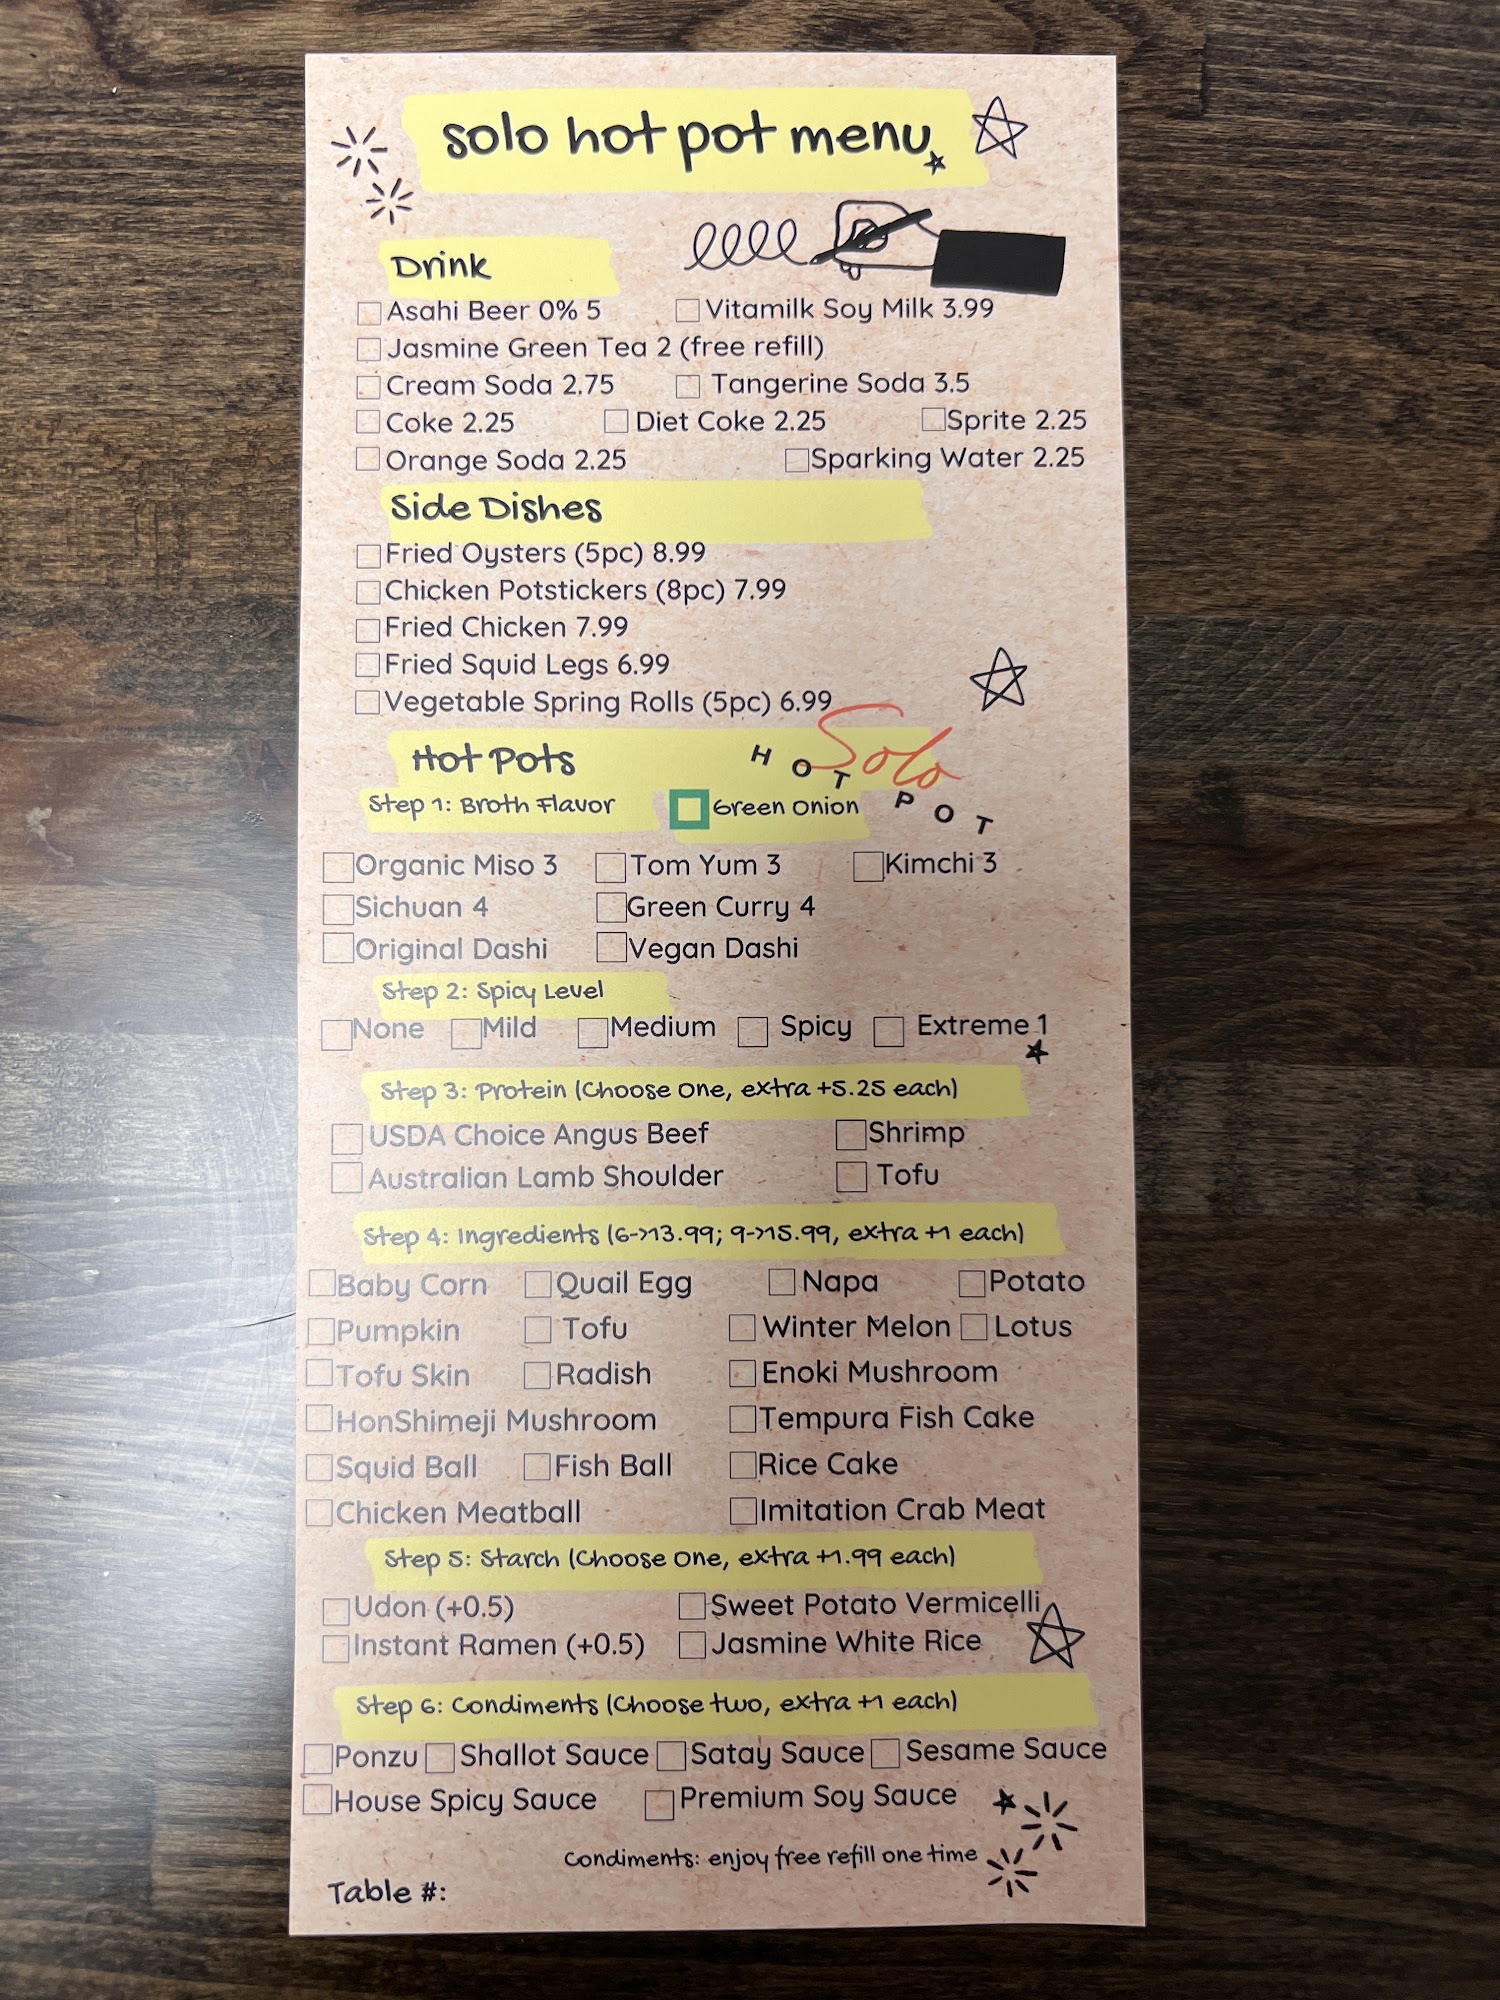 solo hot pot menu
Drink
Asahi Beer 0% 5 Vitamilk Soy Milk 3.99
Jasmine Green Tea 2 (free refill)
Cream Soda 2.75 Tangerine Soda 3.5
Coke 2.25 Diet Coke 2.25 Sprite 2.25
Orange Soda 2.25 Sparking Water 2.25
Side Dishes
Fried Oysters (5pc) 8.99
Chicken Potstickers (8pc) 7.99
Fried Chicken 7.99
Fried Squid Legs 6.99
Vegetable Spring Rolls (5pc) 6.99
Hot Pots
Solo
HOT POT
Step 1: Broth Flavor Green Onion
Organic Miso 3 Tom Yum 3 Kimchi 3
Sichuan 4 Green Curry 4
Original Dashi Vegan Dashi
Step 2: Spicy Level
None Mild Medium Spicy Extreme 1
Step 3: Protein (Choose One, extra +5.25 each)
USDA Choice Angus Beef Shrimp
Australian Lamb Shoulder Tofu
Step 4: Ingredients (6->13.99; 9->15.99, extra +1 each)
Baby Corn Quail Egg Napa Potato
Pumpkin Tofu Winter Melon Lotus
Tofu Skin Radish Enoki Mushroom
HonShimeji Mushroom Tempura Fish Cake
Squid Ball Fish Ball Rice Cake
Chicken Meatball Imitation Crab Meat
Step 5: Starch (Choose One, extra +1.99 each)
Udon (+0.5) Sweet Potato Vermicelli
Instant Ramen (+0.5) Jasmine White Rice
Step 6: Condiments (Choose two, extra +1 each)
Ponzu Shallot Sauce Satay Sauce Sesame Sauce
House Spicy Sauce Premium Soy Sauce
Condiments: enjoy free refill one time
Table #: